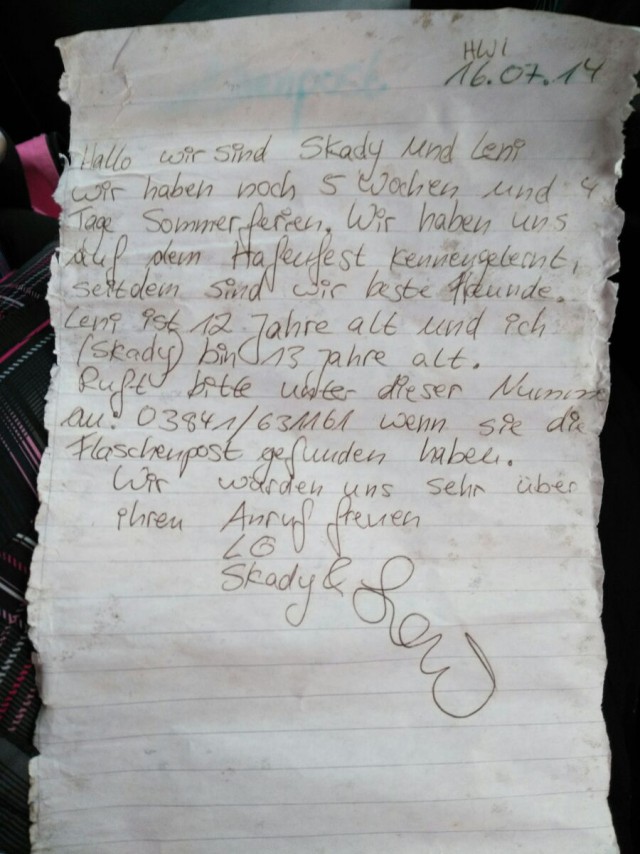 HWI
16.07.14
Hallo wir sind Skady und Leni
wir haben noch 5 Wochen und 4
Tage Sommerferien. Wir haben uns
auf dem Hafenfest kennengelernt,
seitdem sind wir beste freunde.
Leni ist 12 Jahre alt und ich
(Skady) bin 13 Jahre alt.
Ruft bitte unter dieser Numm
an: 03841/631161 wenn sie die
Flaschenpost gefunden haben.
Wir würden uns sehr über
ihren Anruf freuen
LG
Skady & Leni